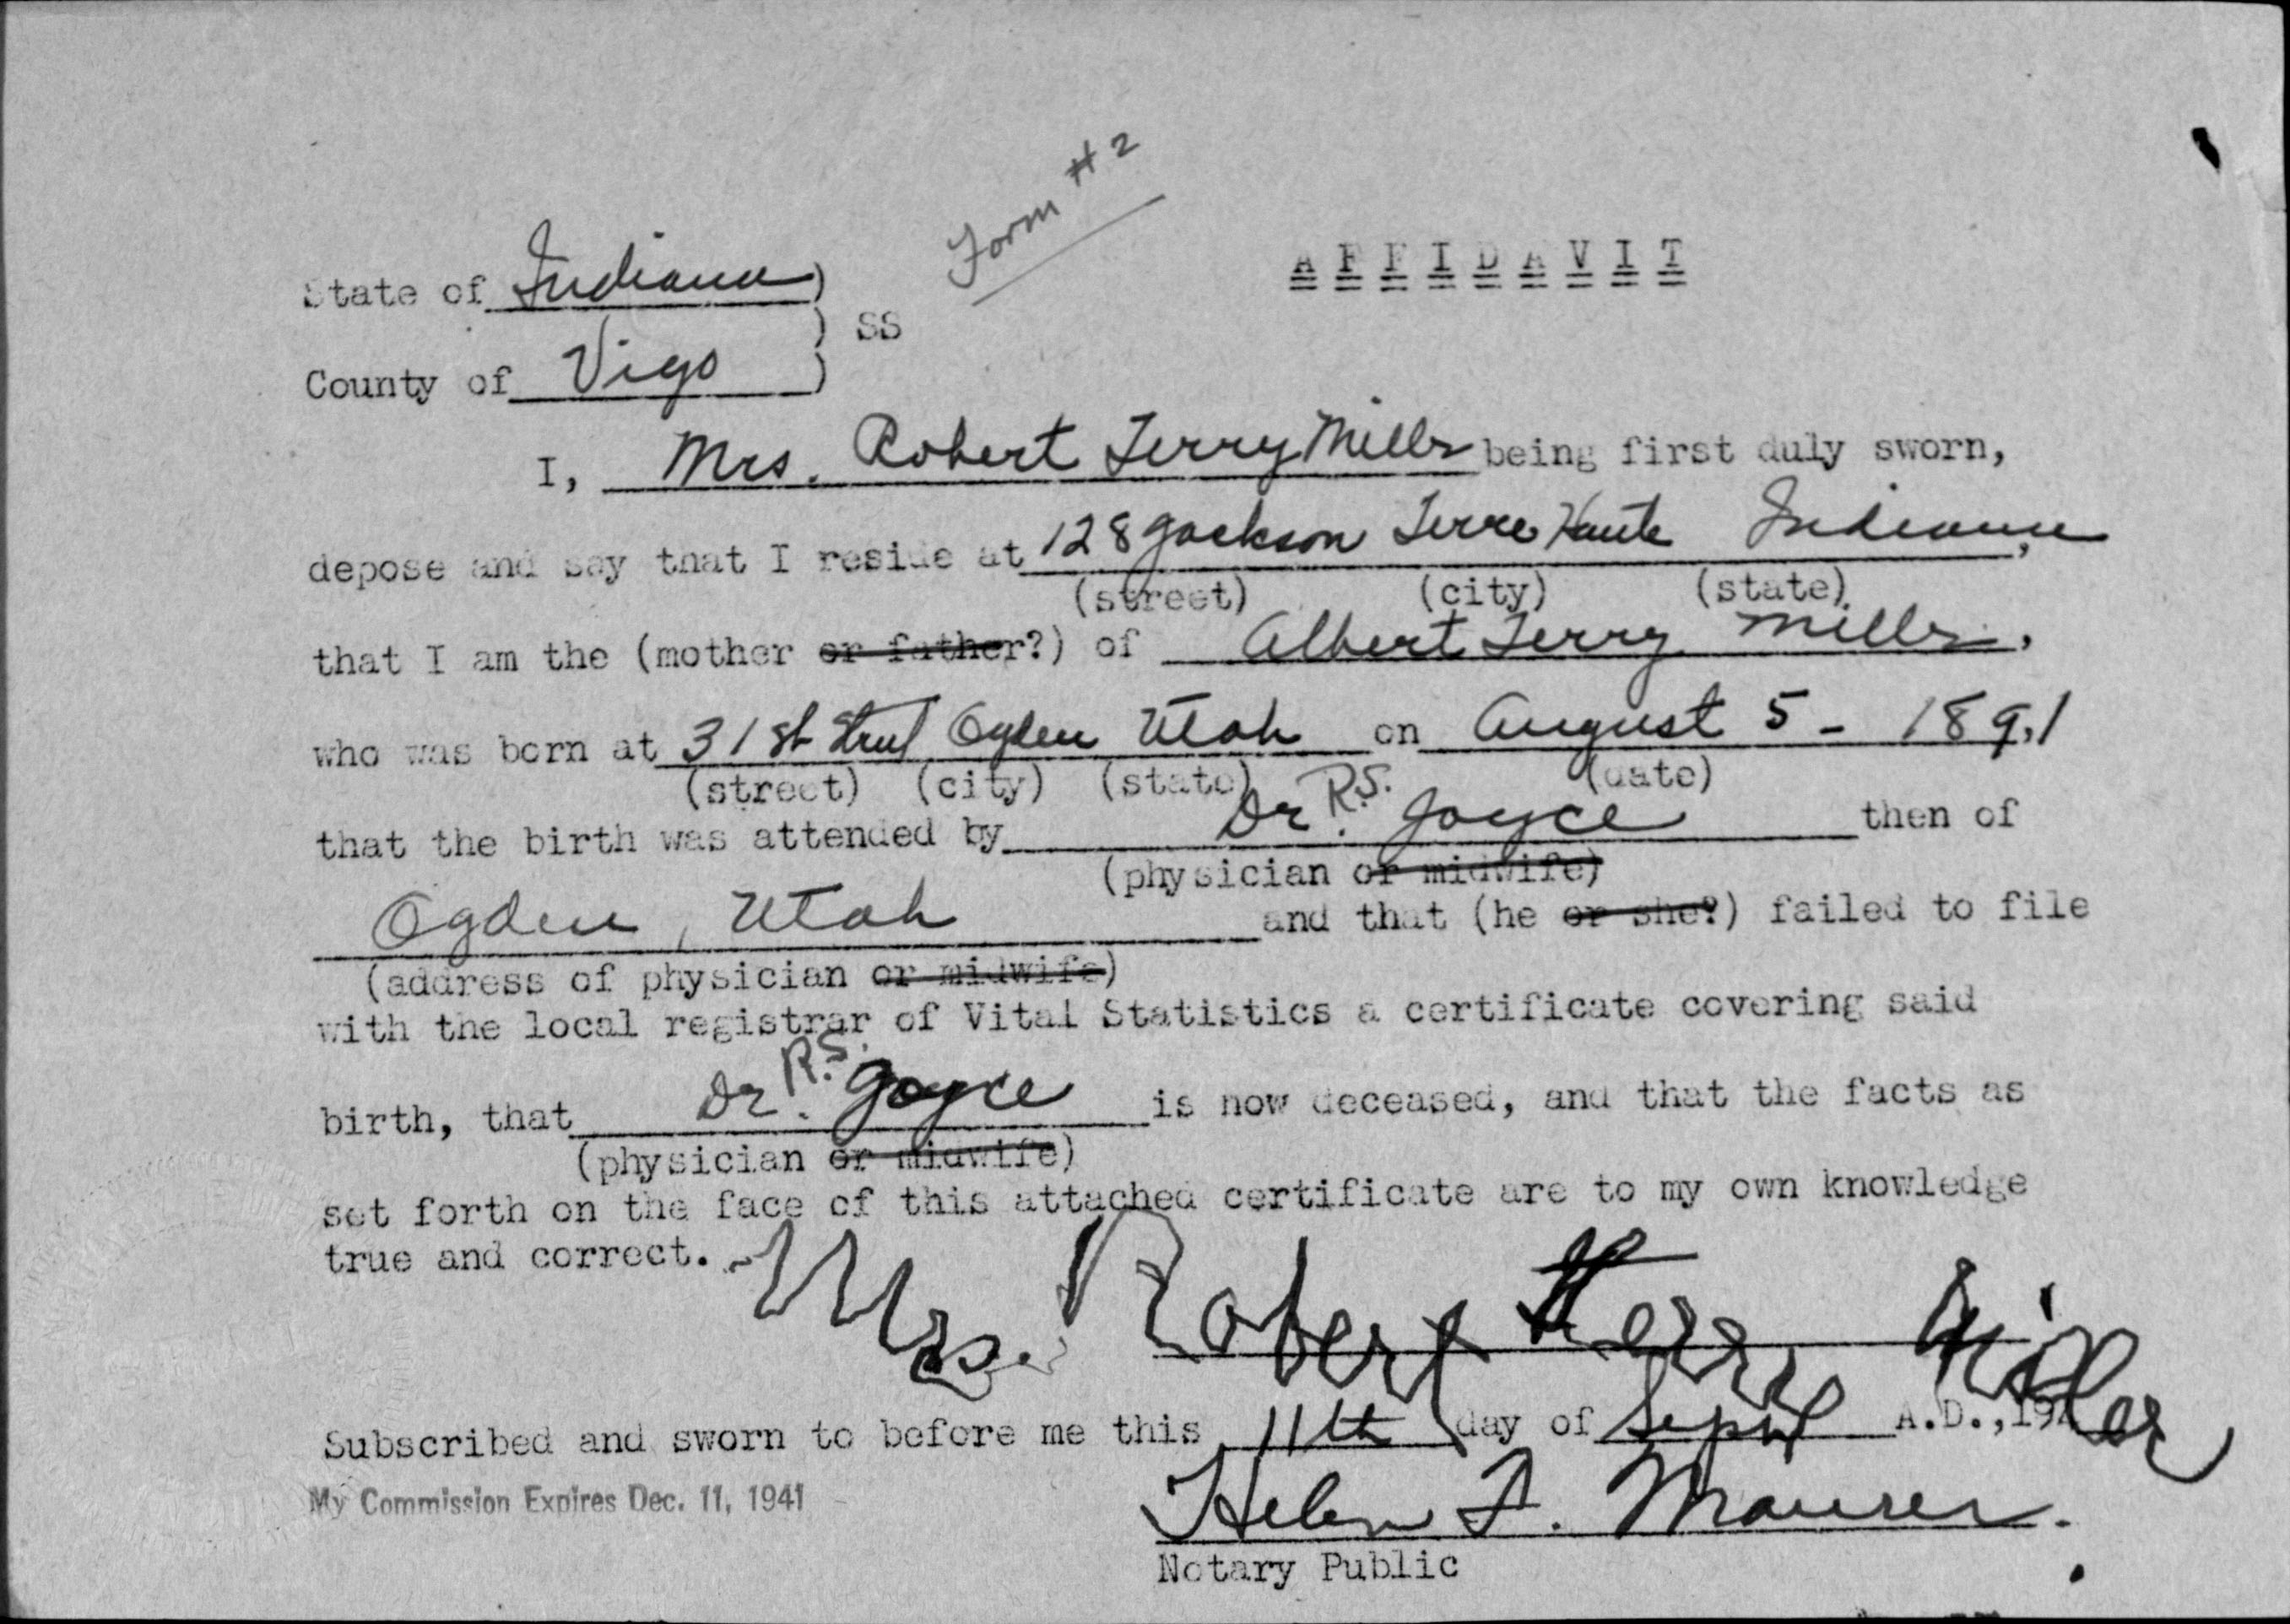 Form #2
AFFIDAVIT
State of Indiana )
) SS
County of Vigo )
I, Mrs. Robert Terry Mills being first duly sworn,
depose and say that I reside at 128 Jackson Terre Haute Indiana,
(street) (city) (state)
that I am the (mother or father?) of Albert Terry Mills,
who was born at 31st Street Ogden Utah on August 5 - 1891
(street) (city) (state) (date)
that the birth was attended by Dr. R.S. Joyce then of
(physician or midwife)
Ogden, Utah and that (he or she?) failed to file
(address of physician or midwife)
with the local registrar of Vital Statistics a certificate covering said
birth, that Dr. R.S. Joyce is now deceased, and that the facts as
(physician or midwife)
set forth on the face of this attached certificate are to my own knowledge
true and correct.
Mrs. Robert Terry
Subscribed and sworn to before me this 11th day of Sept A.D., 19
My Commission Expires Dec. 11, 1941
Helen F. Maurer.
Notary Public